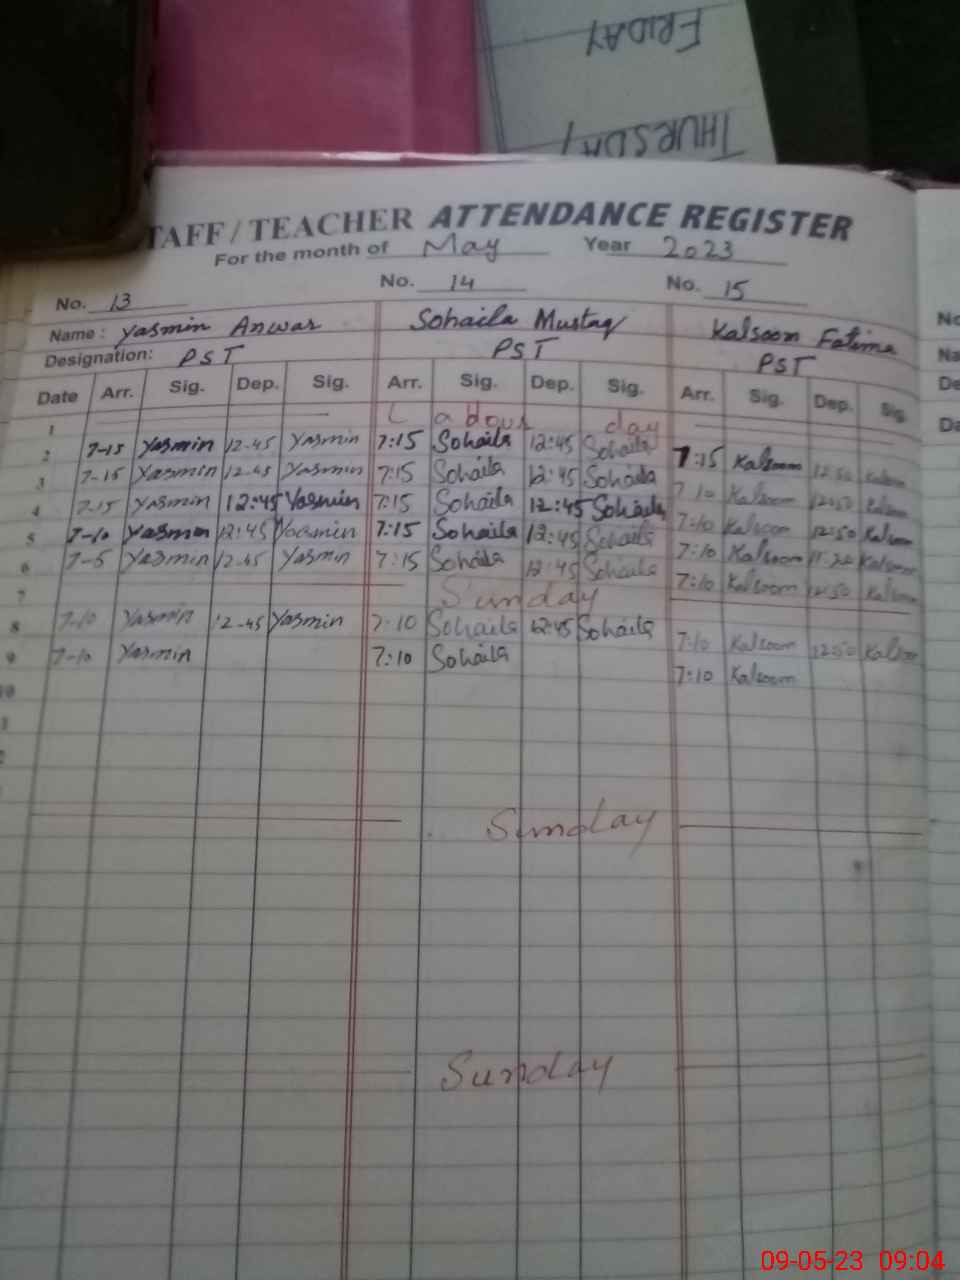 FRIDAY
THURSDAY
TAFF / TEACHER ATTENDANCE REGISTER
For the month of May Year 2023
No. 13 No. 14 No. 15
Name : Yasmin Anwar Sohaila Mustaq Kalsoom Fatima
Designation: PST PST PST
Date Arr. Sig. Dep. Sig. Arr. Sig. Dep. Sig. Arr. Sig. Dep. Sig
1 Labour day
2 7-15 Yasmin 12-45 Yasmin 7:15 Sohaila 12:45 Sohaila 7:15 Kalsoom 12:50 Kalsoom
3 7-15 Yasmin 12-45 Yasmin 7:15 Sohaila 12:45 Sohaila 7:10 Kalsoom 12:50 Kalsoom
4 7-15 Yasmin 12:45 Yasmin 7:15 Sohaila 12:45 Sohaila 7:10 Kalsoom 12:50 Kalsoom
5 7-10 Yasmin 12:45 Yasmin 7:15 Sohaila 12:45 Sohaila 7:10 Kalsoom Kalsoom
6 7-5 Yasmin 12-45 Yasmin 7:15 Sohaila 12:45 Sohaila 7:10 Kalsoom 12:50 Kalsoom
7 Sunday
8 7-10 Yasmin 12-45 Yasmin 7:10 Sohaila 12:45 Sohaila 7:10 Kalsoom 12:50 Kalsoom
9 7-10 Yasmin 7:10 Sohaila 7:10 Kalsoom
10
Sunday
Sunday
No
Na
De
Da
09-05-23 09:04